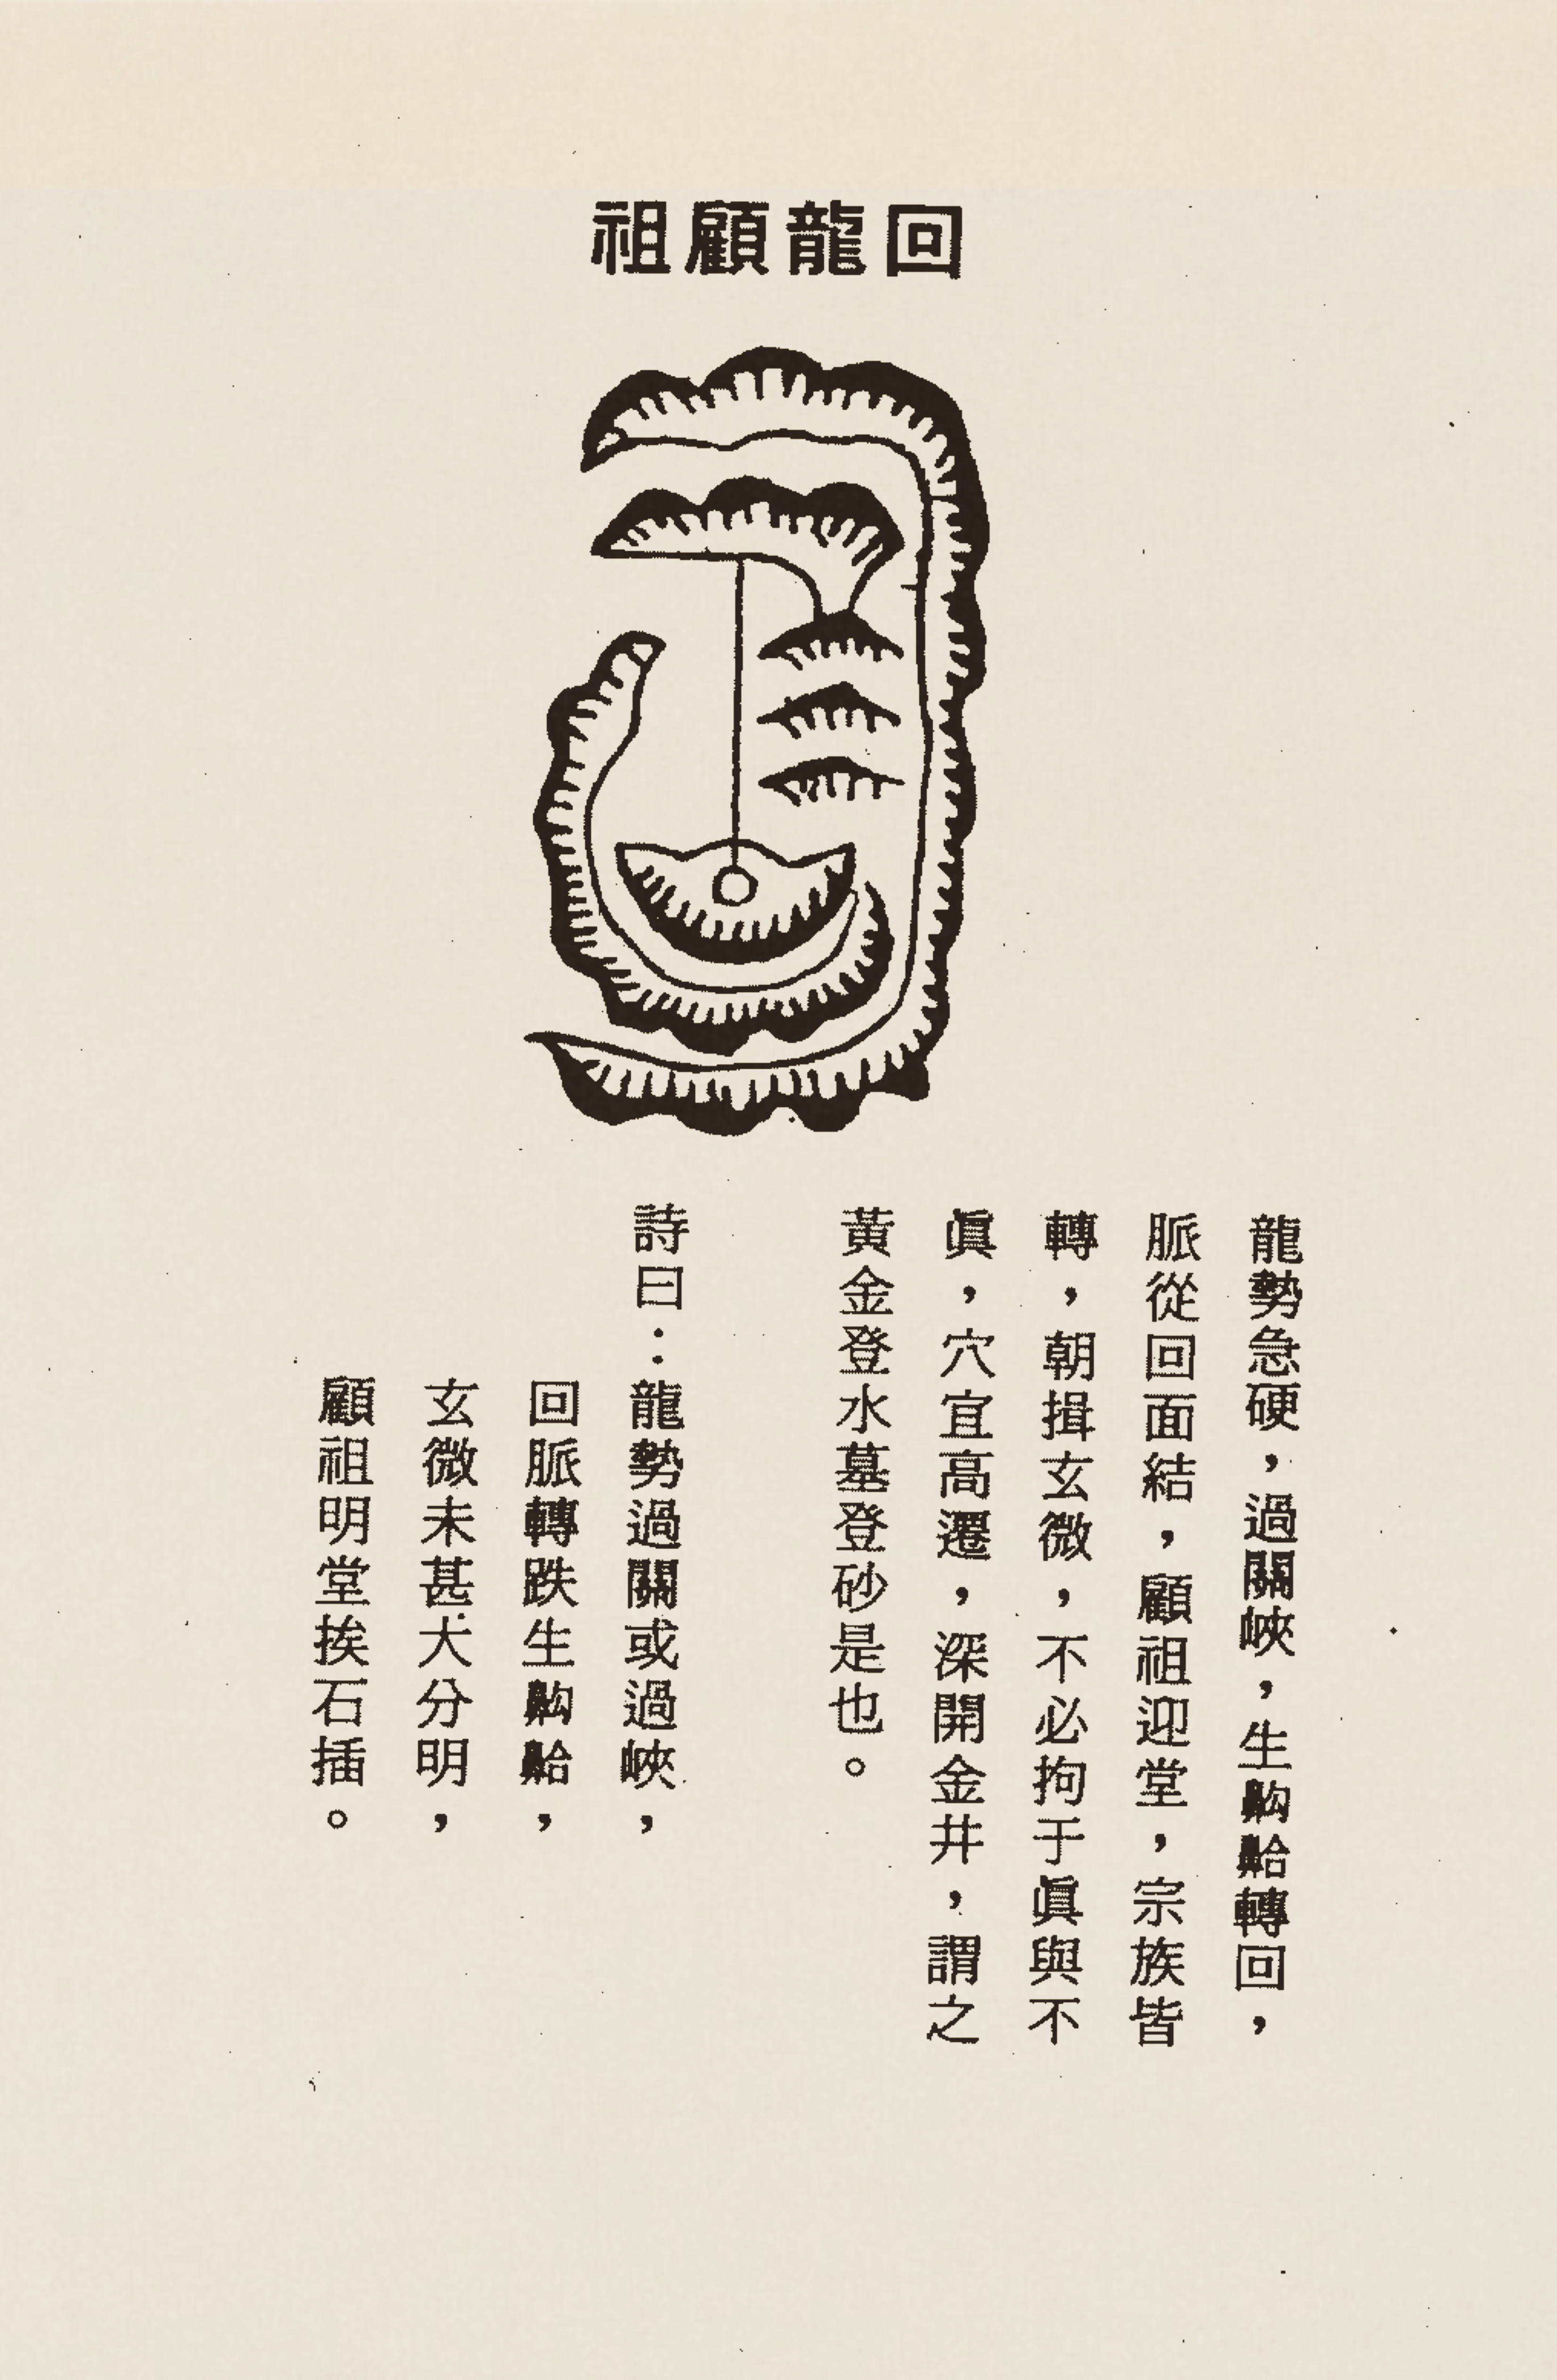 回龍顧祖
龍勢急硬，過關峽，生齁齁轉回，
脈從回面結，顧祖迎堂，宗族皆
轉，朝揖玄微，不必拘于眞與不
眞，穴宜高遷，深開金井，謂之
黃金登水墓登砂是也。
詩曰：龍勢過關或過峽，
回脈轉跌生齁䶎，
玄微未甚大分明，
顧祖明堂挨石插。